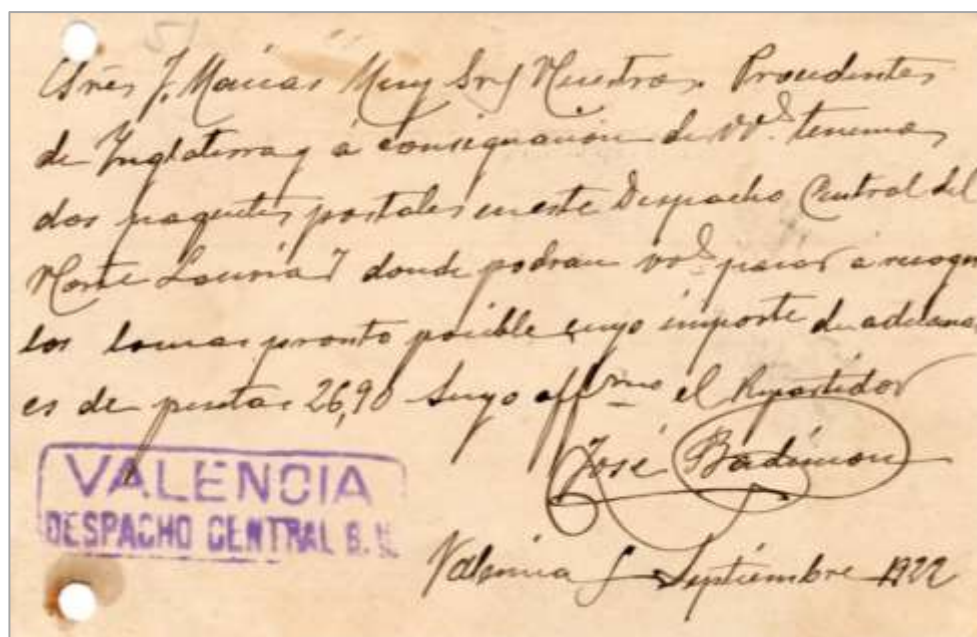 Sres J. Macias Muy Srs Nuestros. Procedentes
de Inglaterra y á consignación de VVds tenemos
dos paquetes postales en este Despacho Central del
Norte Lauria 7 donde podran vds pasar a recoger
los lo mas pronto posible cuyo importe de aduana
es de pesetas 26,90 Suyo affmo el Repartidor
José
VALENCIA
DESPACHO CENTRAL
Valencia 5 Septiembre 1922